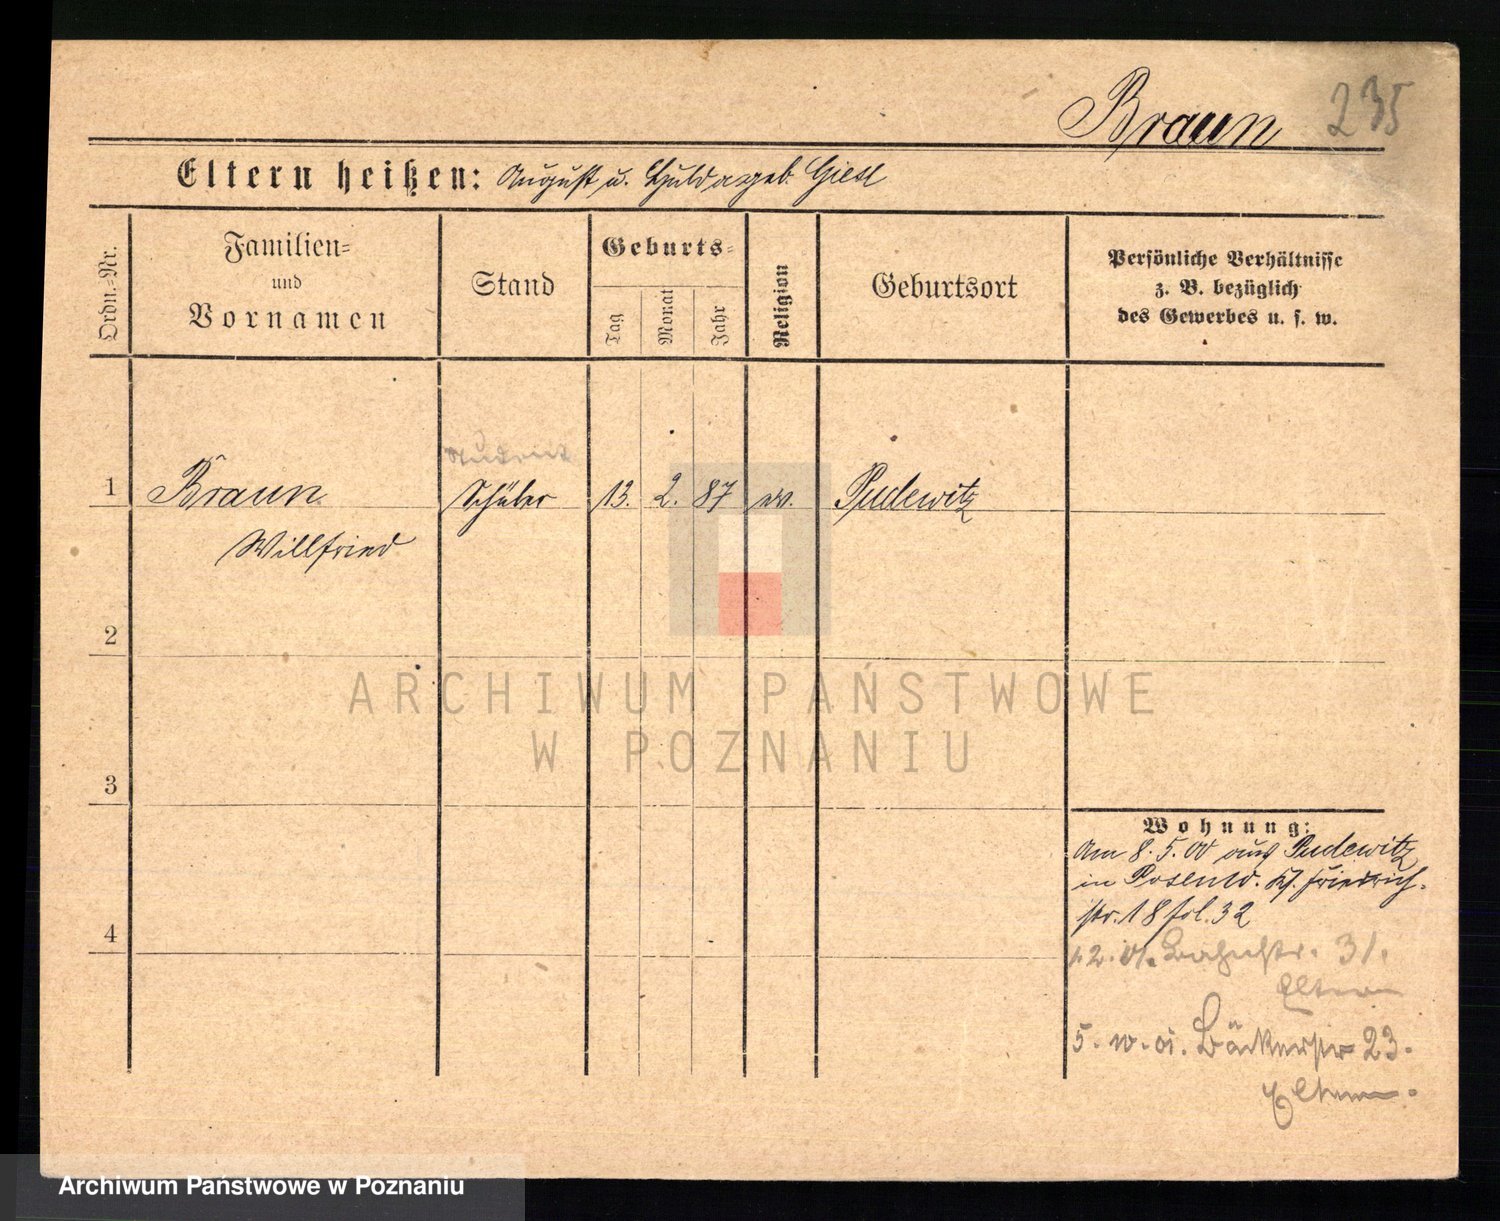 Braun 235
Eltern heißen: August u. Hulda geb. Giese
Ordn.=Nr.
Familien=
und
Vornamen
Stand
Geburts=
Tag
Monat
Jahr
Religion
Geburtsort
Persönliche Verhältnisse
z. B. bezüglich
des Gewerbes u. s. w.
1 Braun Schüler 13. 2. 87 ev. Pudewitz
Willfried
2
3
4
Wohnung:
Am 8.5.00 aus Pudewitz
in Posen Friedrich-
str. 18 fol. 32
31.
Eltern
5. Bäckerstr 23.
Eltern.
ARCHIWUM PAŃSTWOWE
W POZNANIU
Archiwum Państwowe w Poznaniu